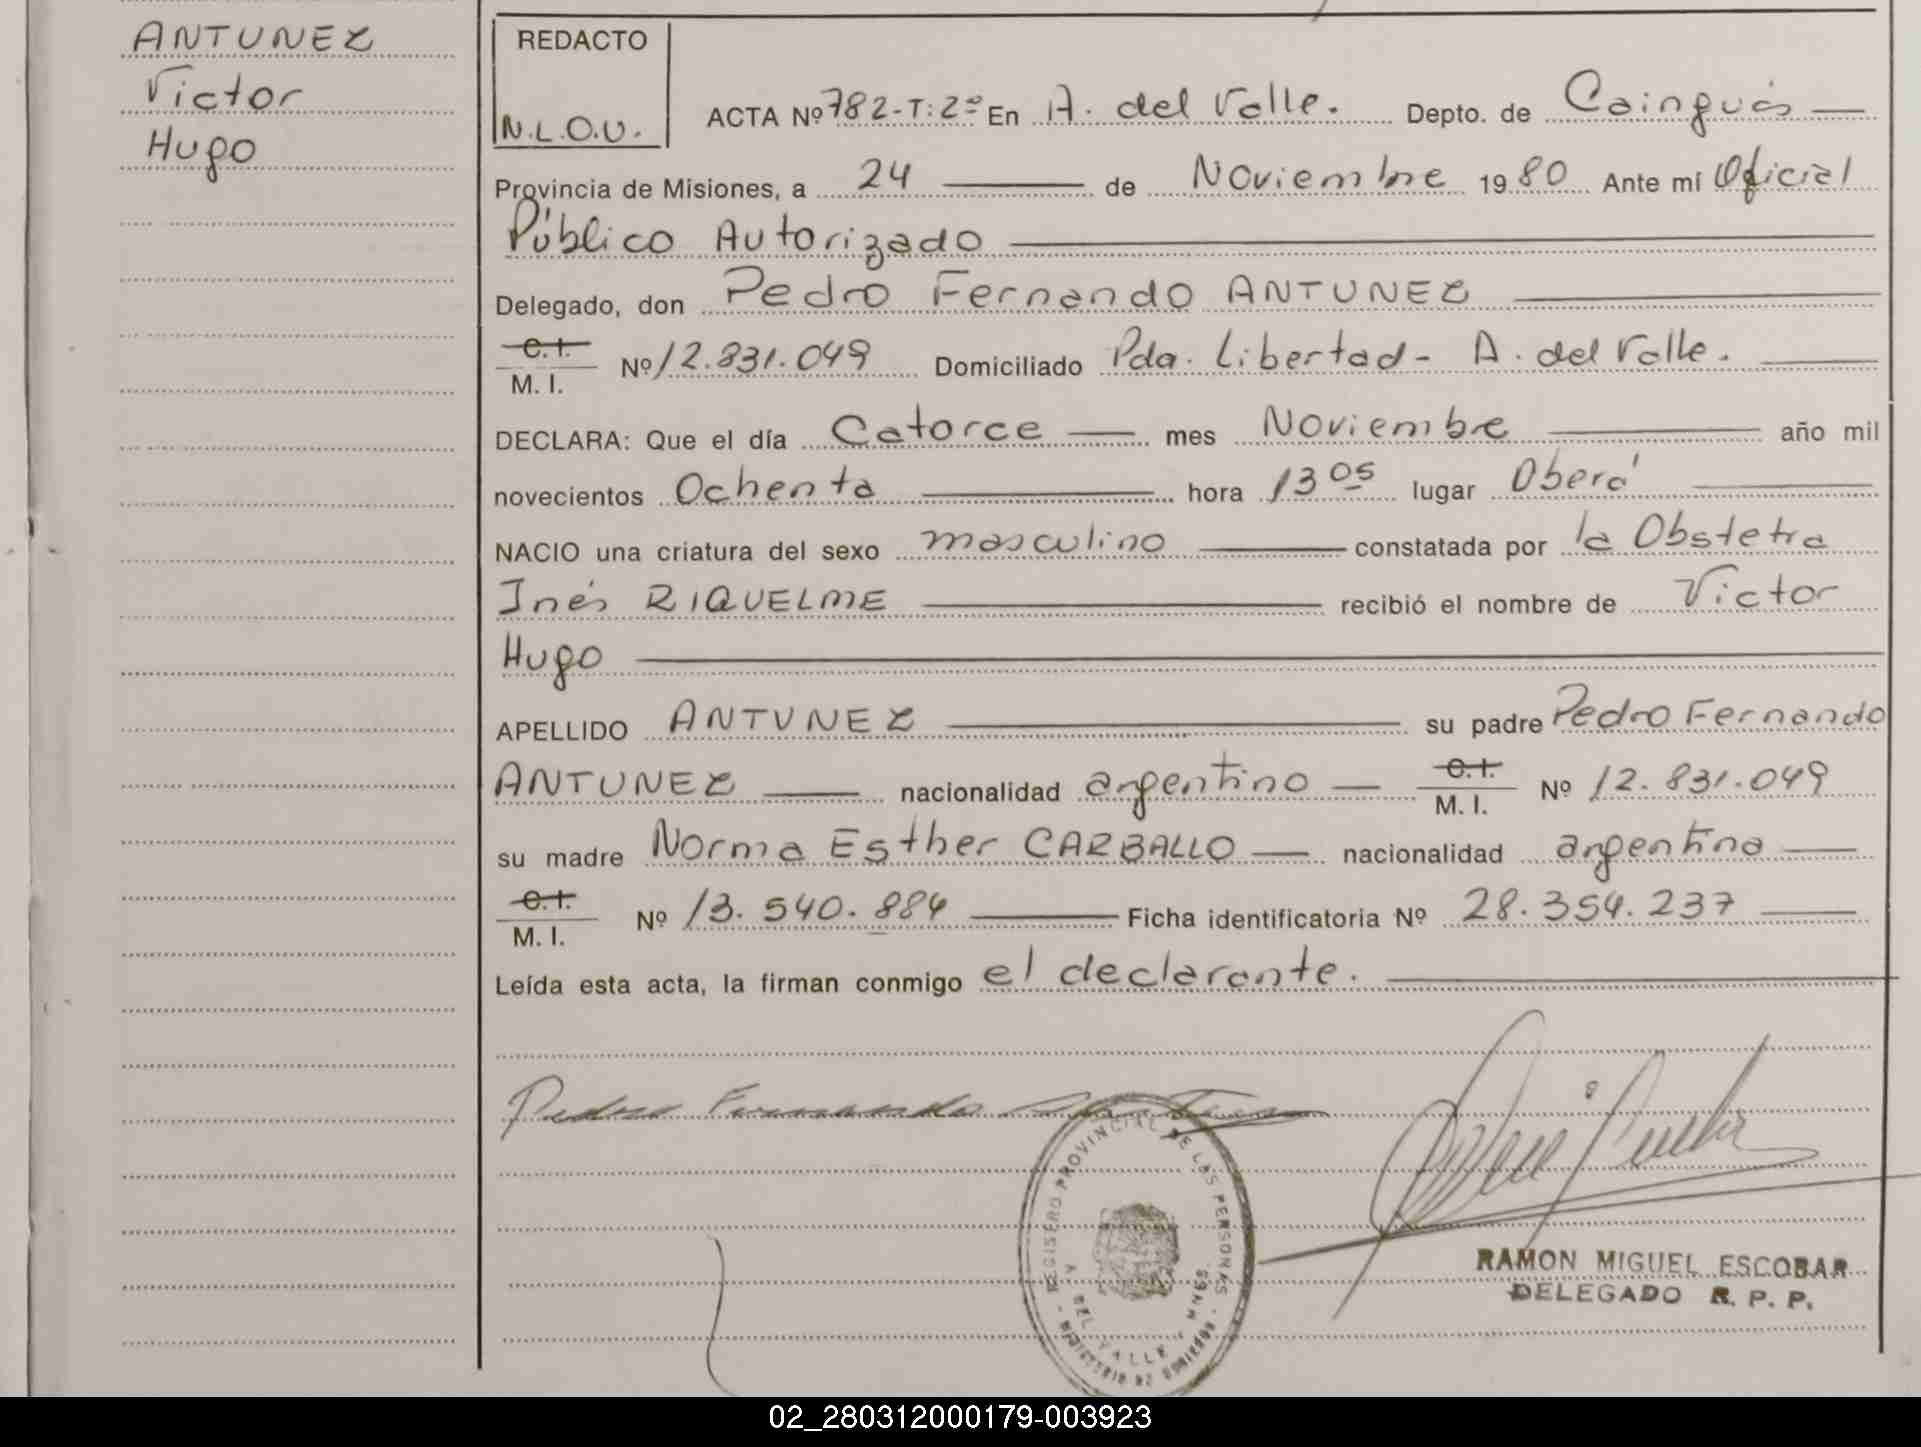 ANTUNEZ
Victor
Hugo
REDACTO
N.L.O.U.
ACTA Nº 782-T:2º En A. del Valle. Depto. de Cainguás
Provincia de Misiones, a 24 de Noviembre 1980 Ante mí Oficial
Público Autorizado
Delegado, don Pedro Fernando ANTUNEZ
C.I. M.I. Nº 12.831.049 Domiciliado Pda. Libertad - A. del Valle.
DECLARA: Que el día Catorce mes Noviembre año mil
novecientos Ochenta hora 13 05 lugar Oberá
NACIO una criatura del sexo masculino constatada por la Obstetra
Inés RIQUELME recibió el nombre de Victor
Hugo
APELLIDO ANTUNEZ su padre Pedro Fernando
ANTUNEZ nacionalidad argentino C.I. M.I. Nº 12.831.049
su madre Norma Esther CARBALLO nacionalidad argentina
C.I. M.I. Nº 13.540.884 Ficha identificatoria Nº 28.354.237
Leída esta acta, la firman conmigo el declarante.
Pedro Fernando
REGISTRO PROVINCIAL DE LAS PERSONAS
A. DEL VALLE MNES.
MINISTERIO DE GOBIERNO
RAMON MIGUEL ESCOBAR
DELEGADO R. P. P.
02_280312000179-003923